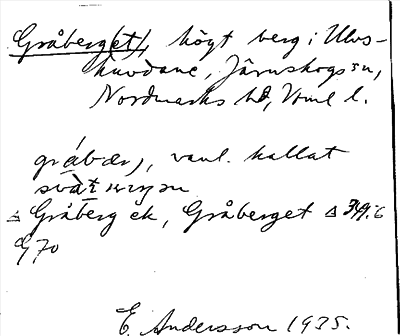 Gråberg(et), högt berg i Ulvs-
huvdane, Järnskogs sn,
Nordmarks hd, Vrml l.
gràbær), vanl. kallat
svàt
△ Gråberg ek, Gråberget △ 349.6
G 70
E. Andersson 1935.